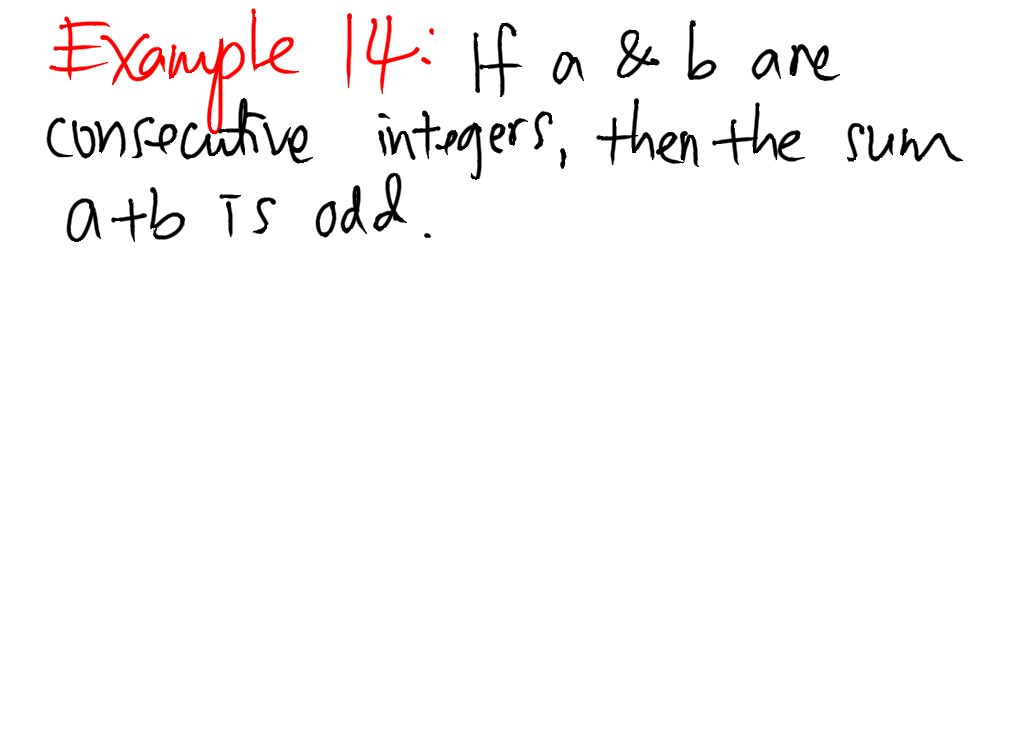 Example 14: If a & b are
consecutive integers, then the sum
a+b is odd.